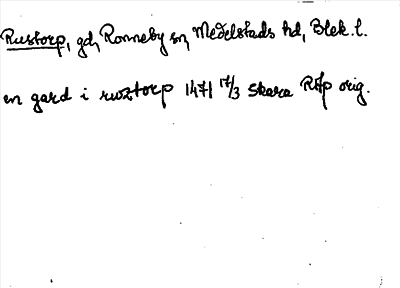 Rustorp, gd, Ronneby sn, Medelstads hd, Blek. l.
en gard i rwztorp 1471 17/3 Skara RAp orig.